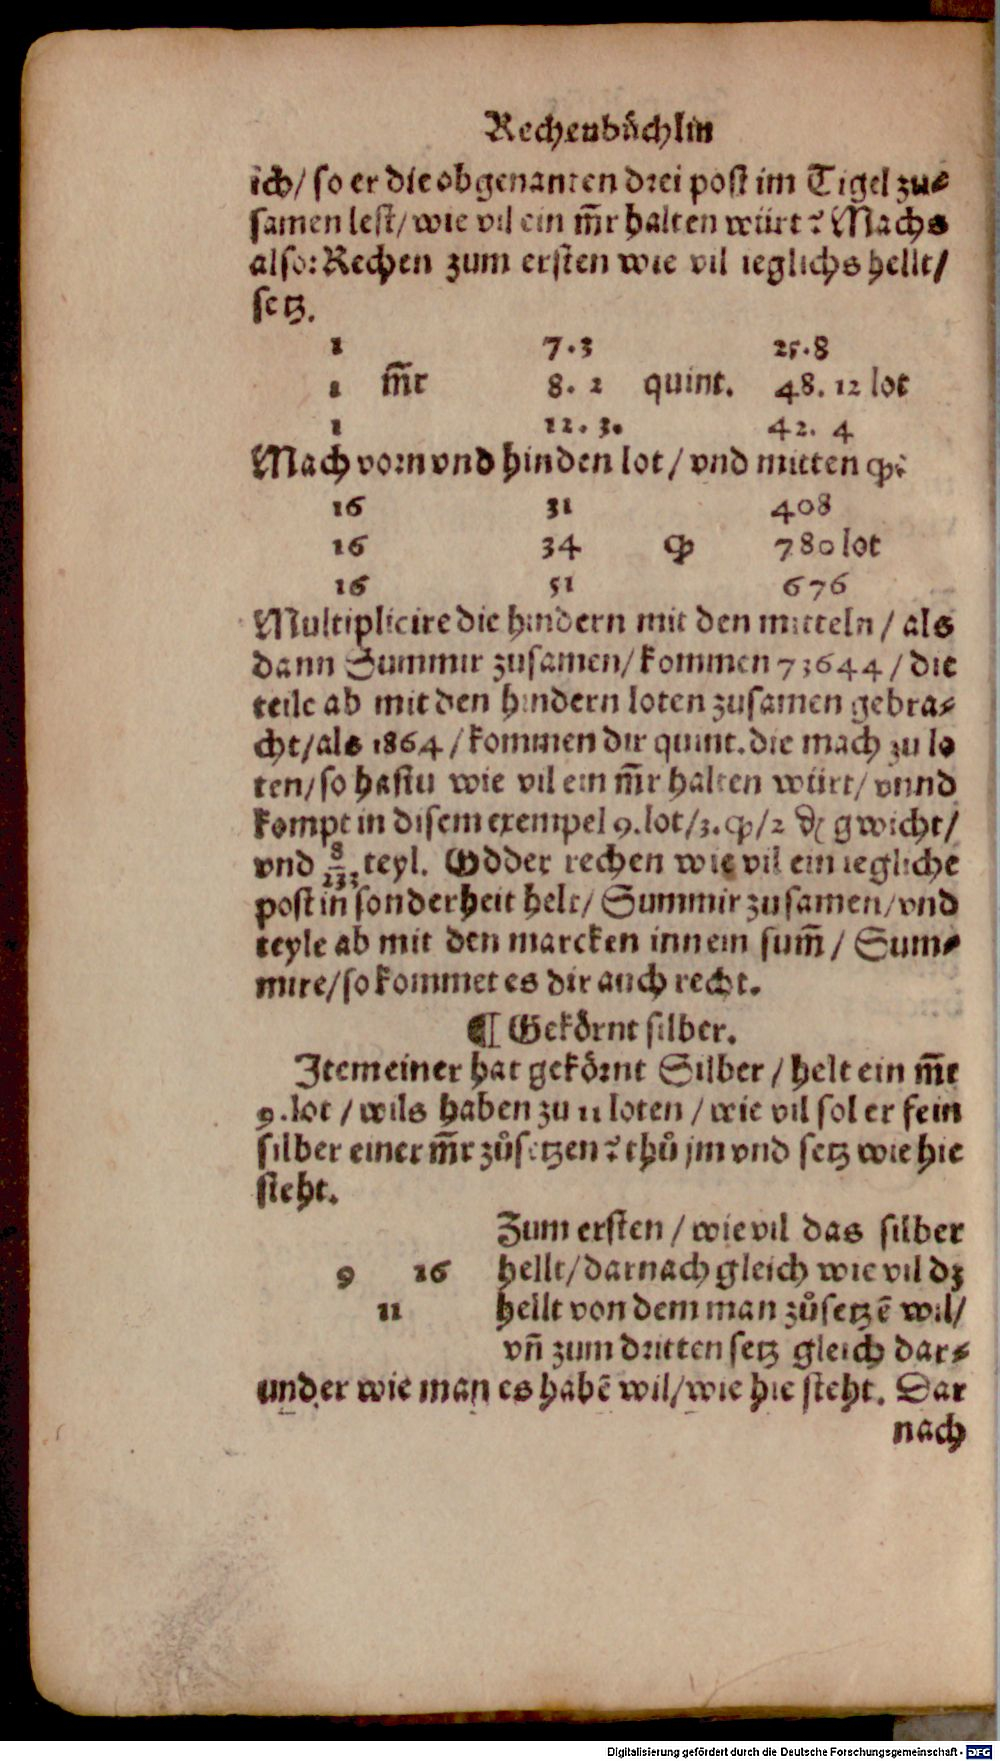 Rechenbůchlin
ich/ so er die obgenanten drei post im Tigel zu⸗
samen lest/ wie vil ein m̃r halten würt? Machs
also: Rechen zum ersten wie vil ieglichs hellt/
setz.
1 7.3 25.8
1 m̃r 8. 2 quint. 48. 12 lot
1 12. 3. 42. 4
Mach vorn vnd hinden lot/ vnd mitten
16 31 408
16 34 780 lot
16 51 676
Multiplicire die hindern mit den mitteln/ als
dann Summir zusamen/ kommen 73644/ die
teile ab mit den hindern loten zusamen gebra⸗
cht/ als 1864/ kommen dir quint. die mach zu lo
ten/ so hastu wie vil ein m̃r halten würt/ vnnd
kompt in disem exempel 9. lot/ 3. /2 gwicht/
vnd 8/233 teyl. Odder rechen wie vil ein iegliche
post in sonderheit helt/ Summir zusamen/ vnd
teyle ab mit den marcken inn ein sum̃/ Sum⸗
mire/ so kommet es dir auch recht.
¶ Gekörnt silber.
Item einer hat gekörnt Silber/ helt ein m̃r
9. lot/ wils haben zu 11 loten/ wie vil sol er fein
silber einer m̃r zůsetzen? thů jm vnd setz wie hie
steht.
Zum ersten/ wie vil das silber
9 16 hellt/ darnach gleich wie vil dz
11 hellt von dem man zůsetzē wil/
vñ zum dritten setz gleich dar⸗
under wie man es habē wil/ wie hie steht. Dar
nach
Digitalisierung gefördert durch die Deutsche Forschungsgemeinschaft - DFG